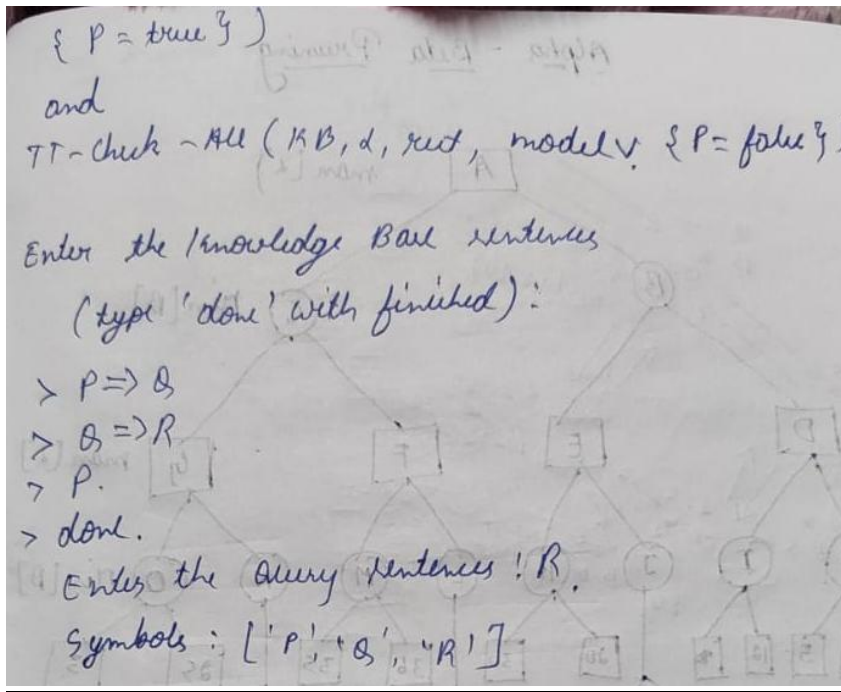 { P = true } )
and
TT-Check-All (KB, α, rest, model ∪ {P = false}
Enter the Knowledge Base sentences
(type 'done' with finished):
> P => Q
> Q => R
> P.
> done.
Enter the Query sentences : R.
Symbols : ['P', 'Q', 'R']